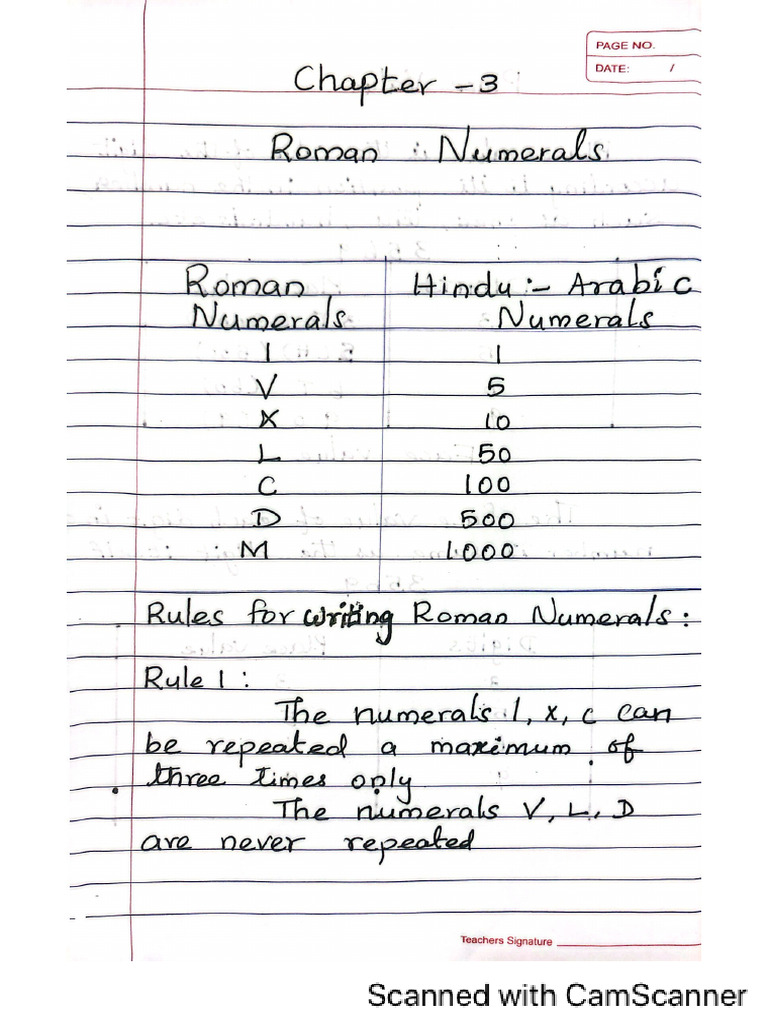 PAGE NO.
DATE: /
Chapter - 3
Roman Numerals
Roman Hindu :- Arabic
Numerals Numerals
I 1
V 5
X 10
L 50
C 100
D 500
M 1000
Rules for writing Roman Numerals :
Rule 1 :
The numerals I, X, C can
be repeated a maximum of
three times only
The numerals V, L, D
are never repeated
Teachers Signature
Scanned with CamScanner